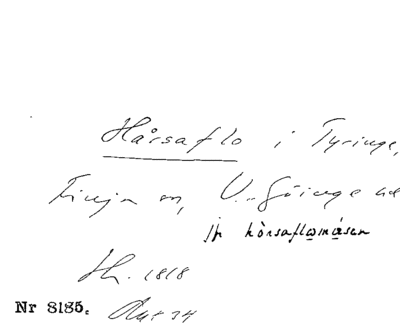 Hårsaflo i Tyringe,
Finja sn, V. Göinge hd
jfr hòrsaflomåsen
Hk. 1818
Nr 8185.